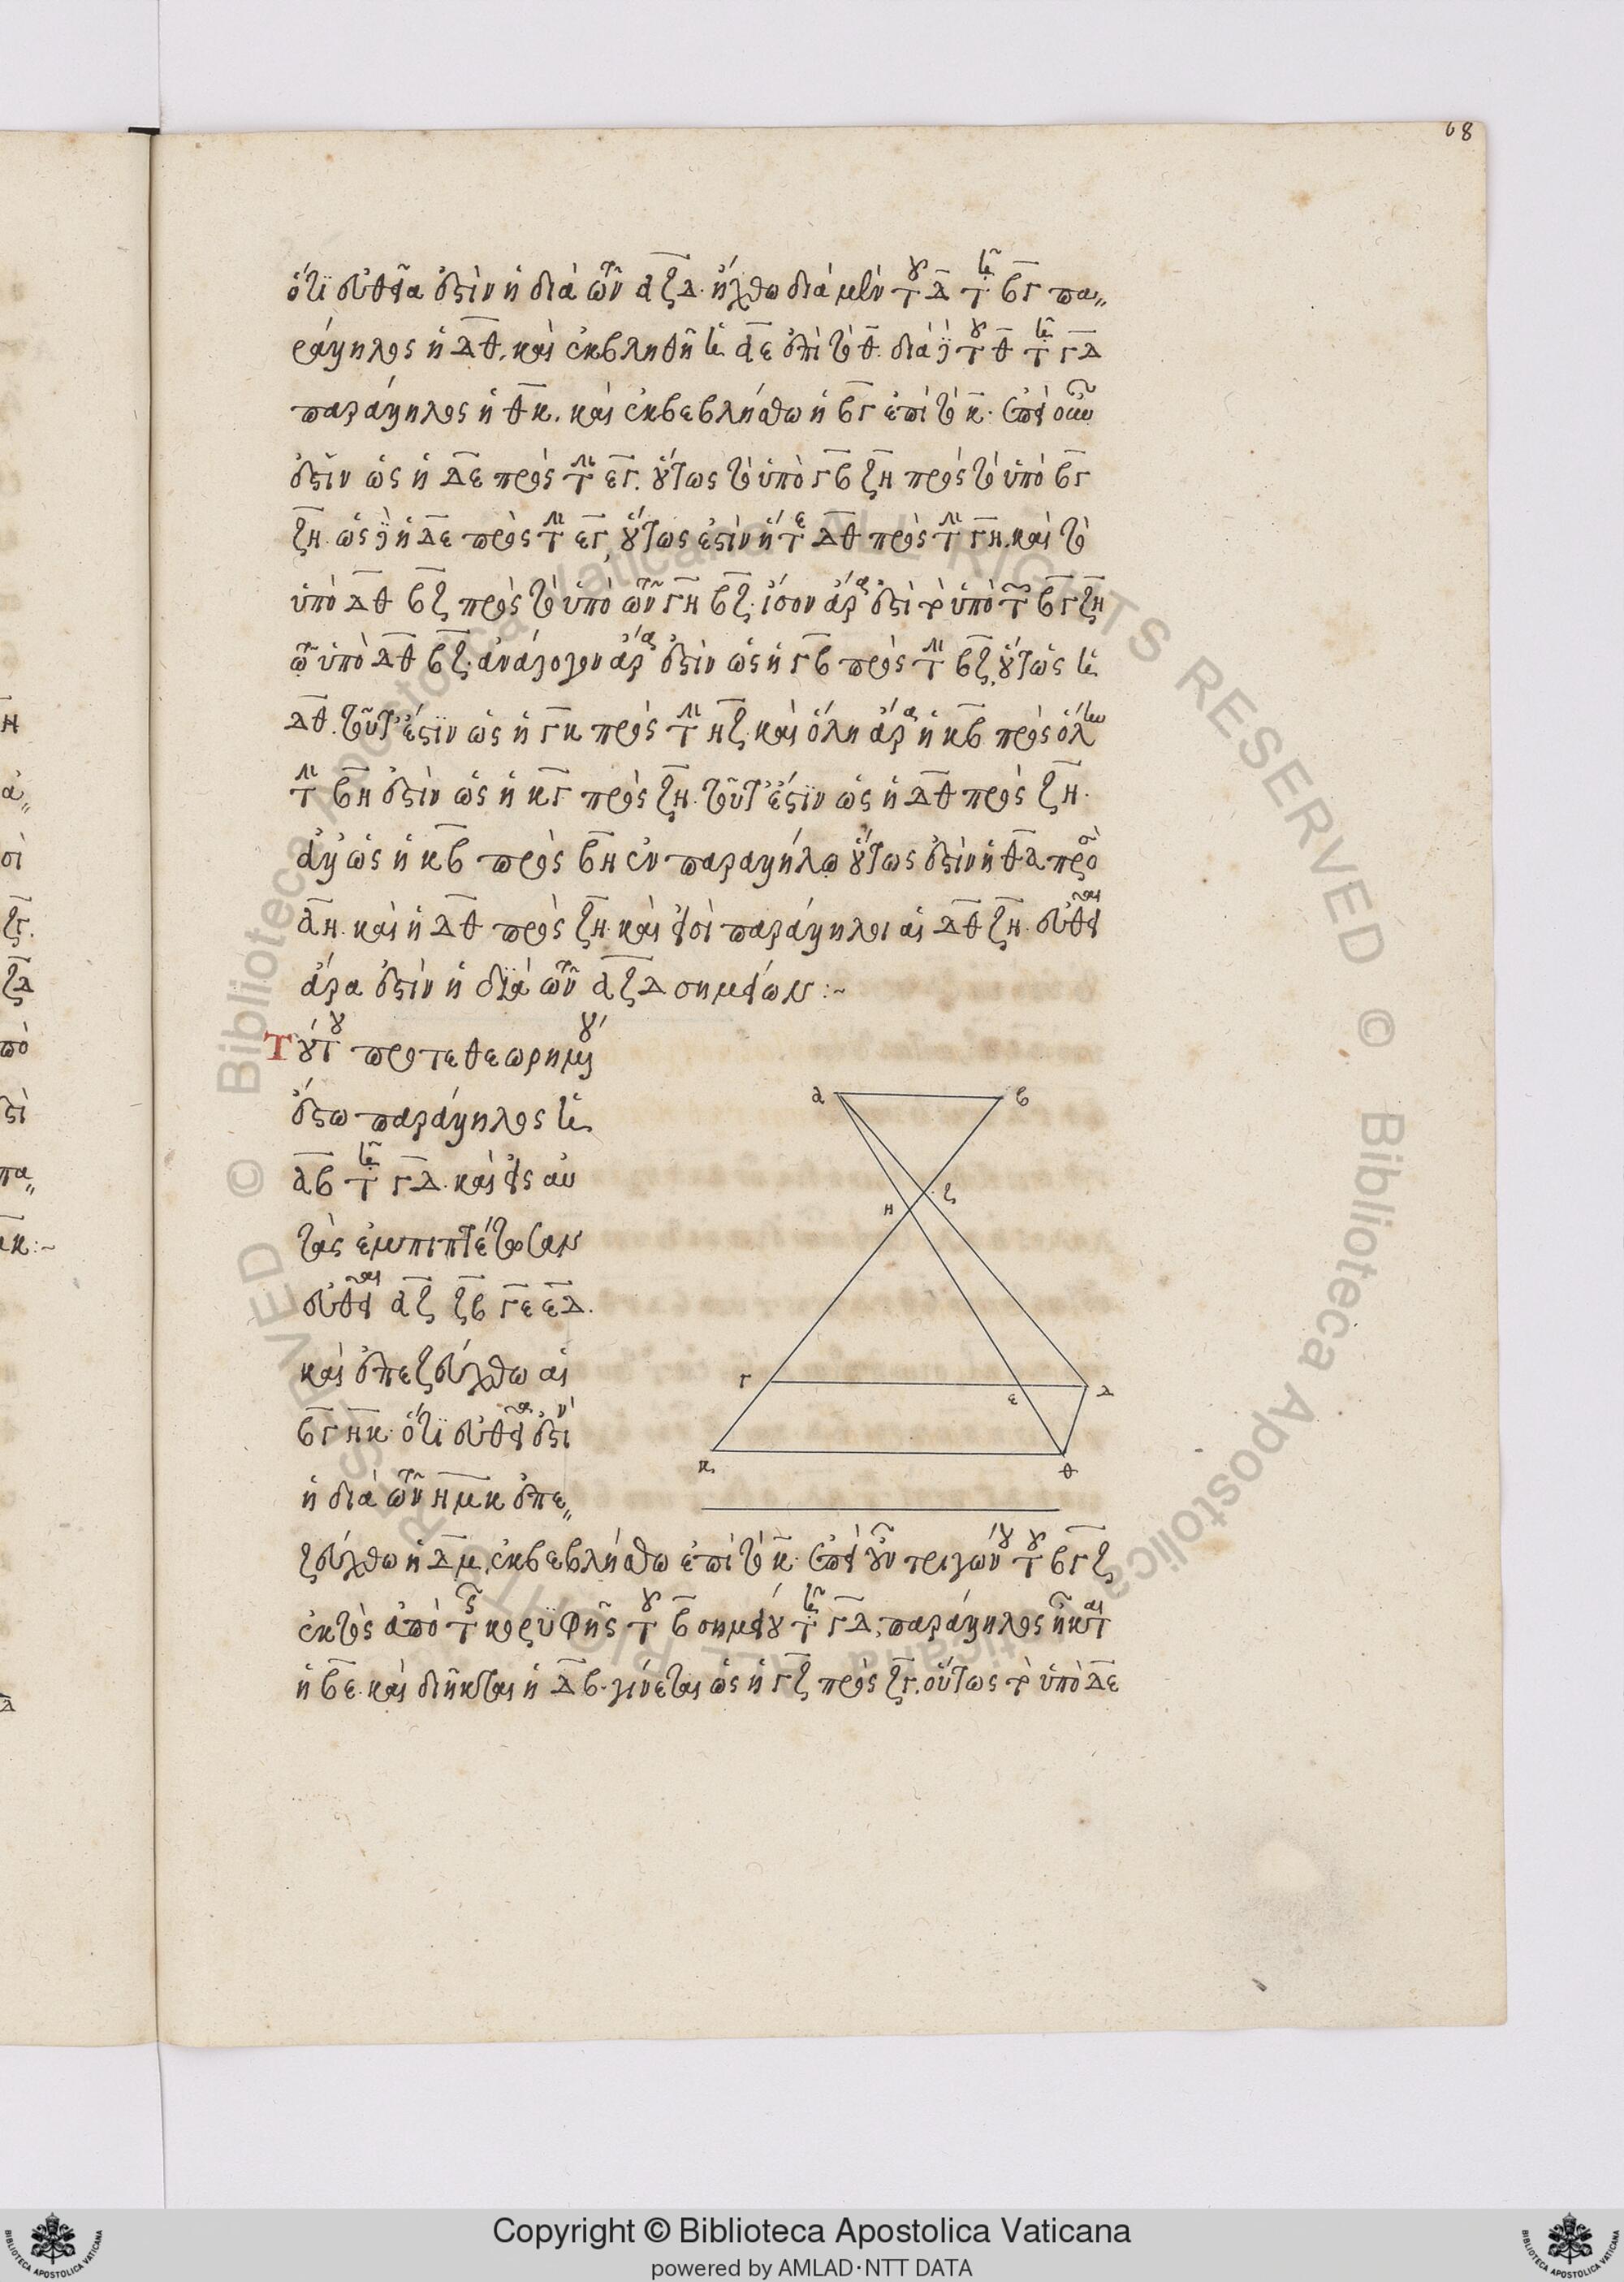 68
ὅτι εὐθεῖα ἐστὶν ἡ διὰ τῶν α ζ δ. ἤχθω διὰ μὲν τοῦ δ τῇ βγ πα〃
ράλληλος ἡ δθ. καὶ ἐκβληθῇ ἡ αε ἐπὶ τὸ θ. διὰ δὲ τοῦ θ τῇ γδ
παράλληλος ἡ θκ. καὶ ἐκβεβλήσθω ἡ βγ ἐπὶ τὸ κ. ἐπεὶ οὖν
ἐστὶν ὡς ἡ δε πρὸς τὴν εγ. οὕτως τὸ ὑπὸ γβ ζη πρὸς τὸ ὑπὸ βγ
ζη. ὡς δὲ ἡ δε πρὸς τὴν εγ, οὕτως ἐστὶν ἥ τε δθ πρὸς τὴν γη. καὶ τὸ
ὑπὸ δθ βζ πρὸς τὸ ὑπὸ τῶν γη βζ. ἴσον ἄρα ἐστὶ τὸ ὑπὸ τῶν βγ ζη
τῷ ὑπὸ δθ βζ. ἀνάλογον ἄρα ἐστὶν ὡς ἡ γβ πρὸς τὴν βζ, οὕτως ἡ
δθ. τοῦτ' ἔστιν ὡς ἡ γκ πρὸς τὴν ηζ. καὶ ὅλη ἄρα ἡ κβ πρὸς ὅλην
τὴν βη ἐστὶν ὡς ἡ κγ πρὸς ζη. τοῦτ' ἔστιν ὡς ἡ δθ πρὸς ζη.
ἀλλ' ὡς ἡ κβ πρὸς βη ἐν παραλλήλῳ οὕτως ἐστὶν ἡ θα πρὸς
αη. καὶ ἡ δθ πρὸς ζη. καὶ εἰσὶ παράλληλοι αἱ δθ ζη. εὐθεῖα
ἄρα ἐστὶν ἡ διὰ τῶν α ζ δ σημείων :~
Τούτου προτεθεωρημένου
ἔστω παράλληλος ἡ
αβ τῇ γδ. καὶ εἰς αὐ
τὰς ἐμπιπτέτωσαν
εὐθεῖαι αζ ζβ γε εδ.
καὶ ἐπεζεύχθω αἱ
βγ ηκ. ὅτι εὐθεῖα ἐστὶν
ἡ διὰ τῶν η μ κ ἐπε〃
ζεύχθω ἡ δμ, ἐκβεβλήσθω ἐπὶ τὸ κ. ἐπεὶ οὖν τριγώνου τοῦ βγζ
ἐκτὸς ἀπὸ τῆς κορυφῆς τοῦ β σημείου τῇ γδ, παράλληλος ἦκται
ἡ βε. καὶ διῆκται ἡ δβ. γίνεται ὡς ἡ γζ πρὸς ζγ. οὕτως τὸ ὑπὸ δε
α
β
η
ζ
γ
ε
δ
κ
θ
Copyright © Biblioteca Apostolica Vaticana
powered by AMLAD·NTT DATA